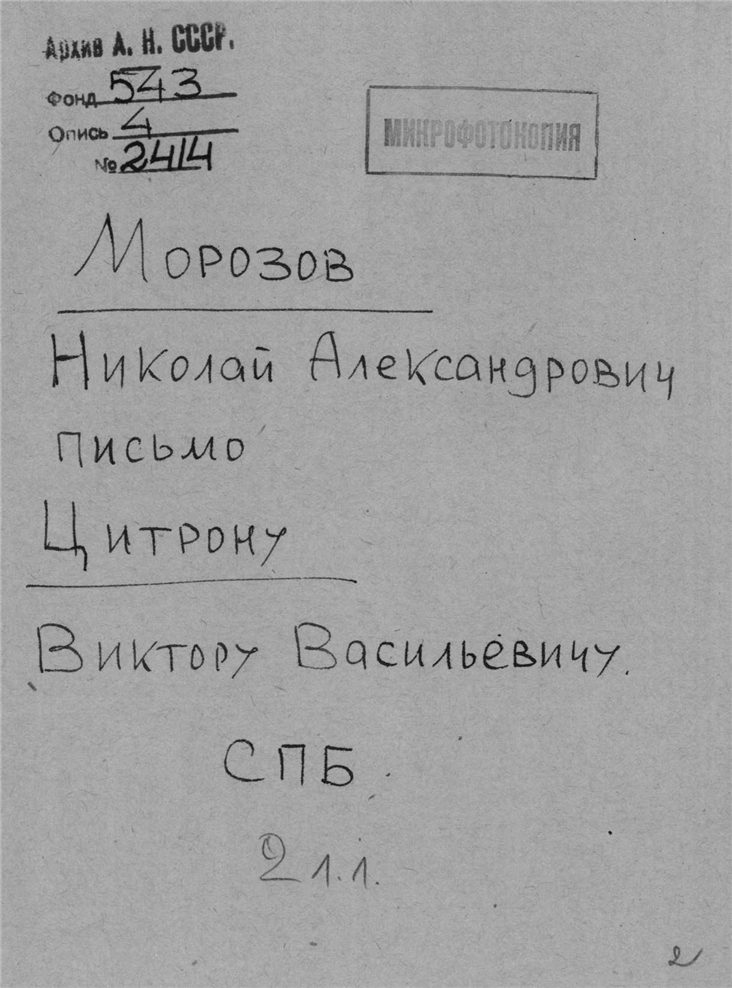 Архив А. Н. СССР.
Фонд 543
Опись 4
№ 2414
МИКРОФОТОКОПИЯ
Морозов
Николай Александрович
письмо
Цитрону
Виктору Васильевичу.
СПБ.
2 л.л.
2